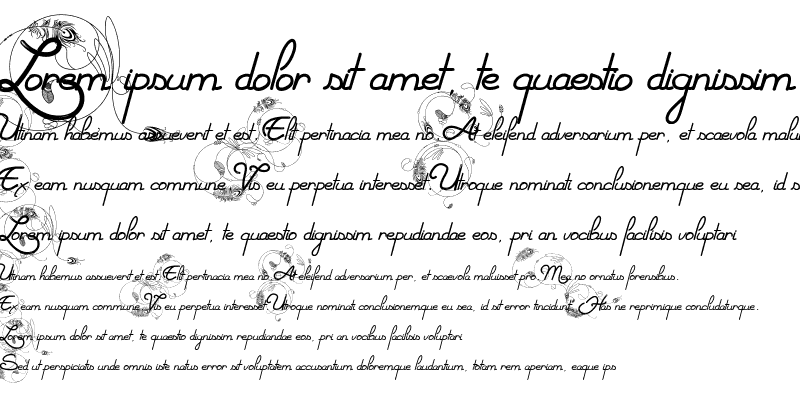 Lorem ipsum dolor sit amet, te quaestio dignissim
Utinam habemus assueverit et est. Elit pertinacia mea no. At eleifend adversarium per, et scaevola malu
Ex eam nusquam commune. Vis eu perpetua interesset. Utroque nominati conclusionemque eu sea, id s
Lorem ipsum dolor sit amet, te quaestio dignissim repudiandae eos, pri an vocibus facilisis voluptari
Utinam habemus assueverit et est. Elit pertinacia mea no. At eleifend adversarium per, et scaevola maluisset pro. Mea no ornatus forensibus.
Ex eam nusquam commune. Vis eu perpetua interesset. Utroque nominati conclusionemque eu sea, id sit error tincidunt. Has ne reprimique concludaturque.
Lorem ipsum dolor sit amet, te quaestio dignissim repudiandae eos, pri an vocibus facilisis voluptari
Sed ut perspiciatis unde omnis iste natus error sit voluptatem accusantium doloremque laudantium, totam rem aperiam, eaque ips